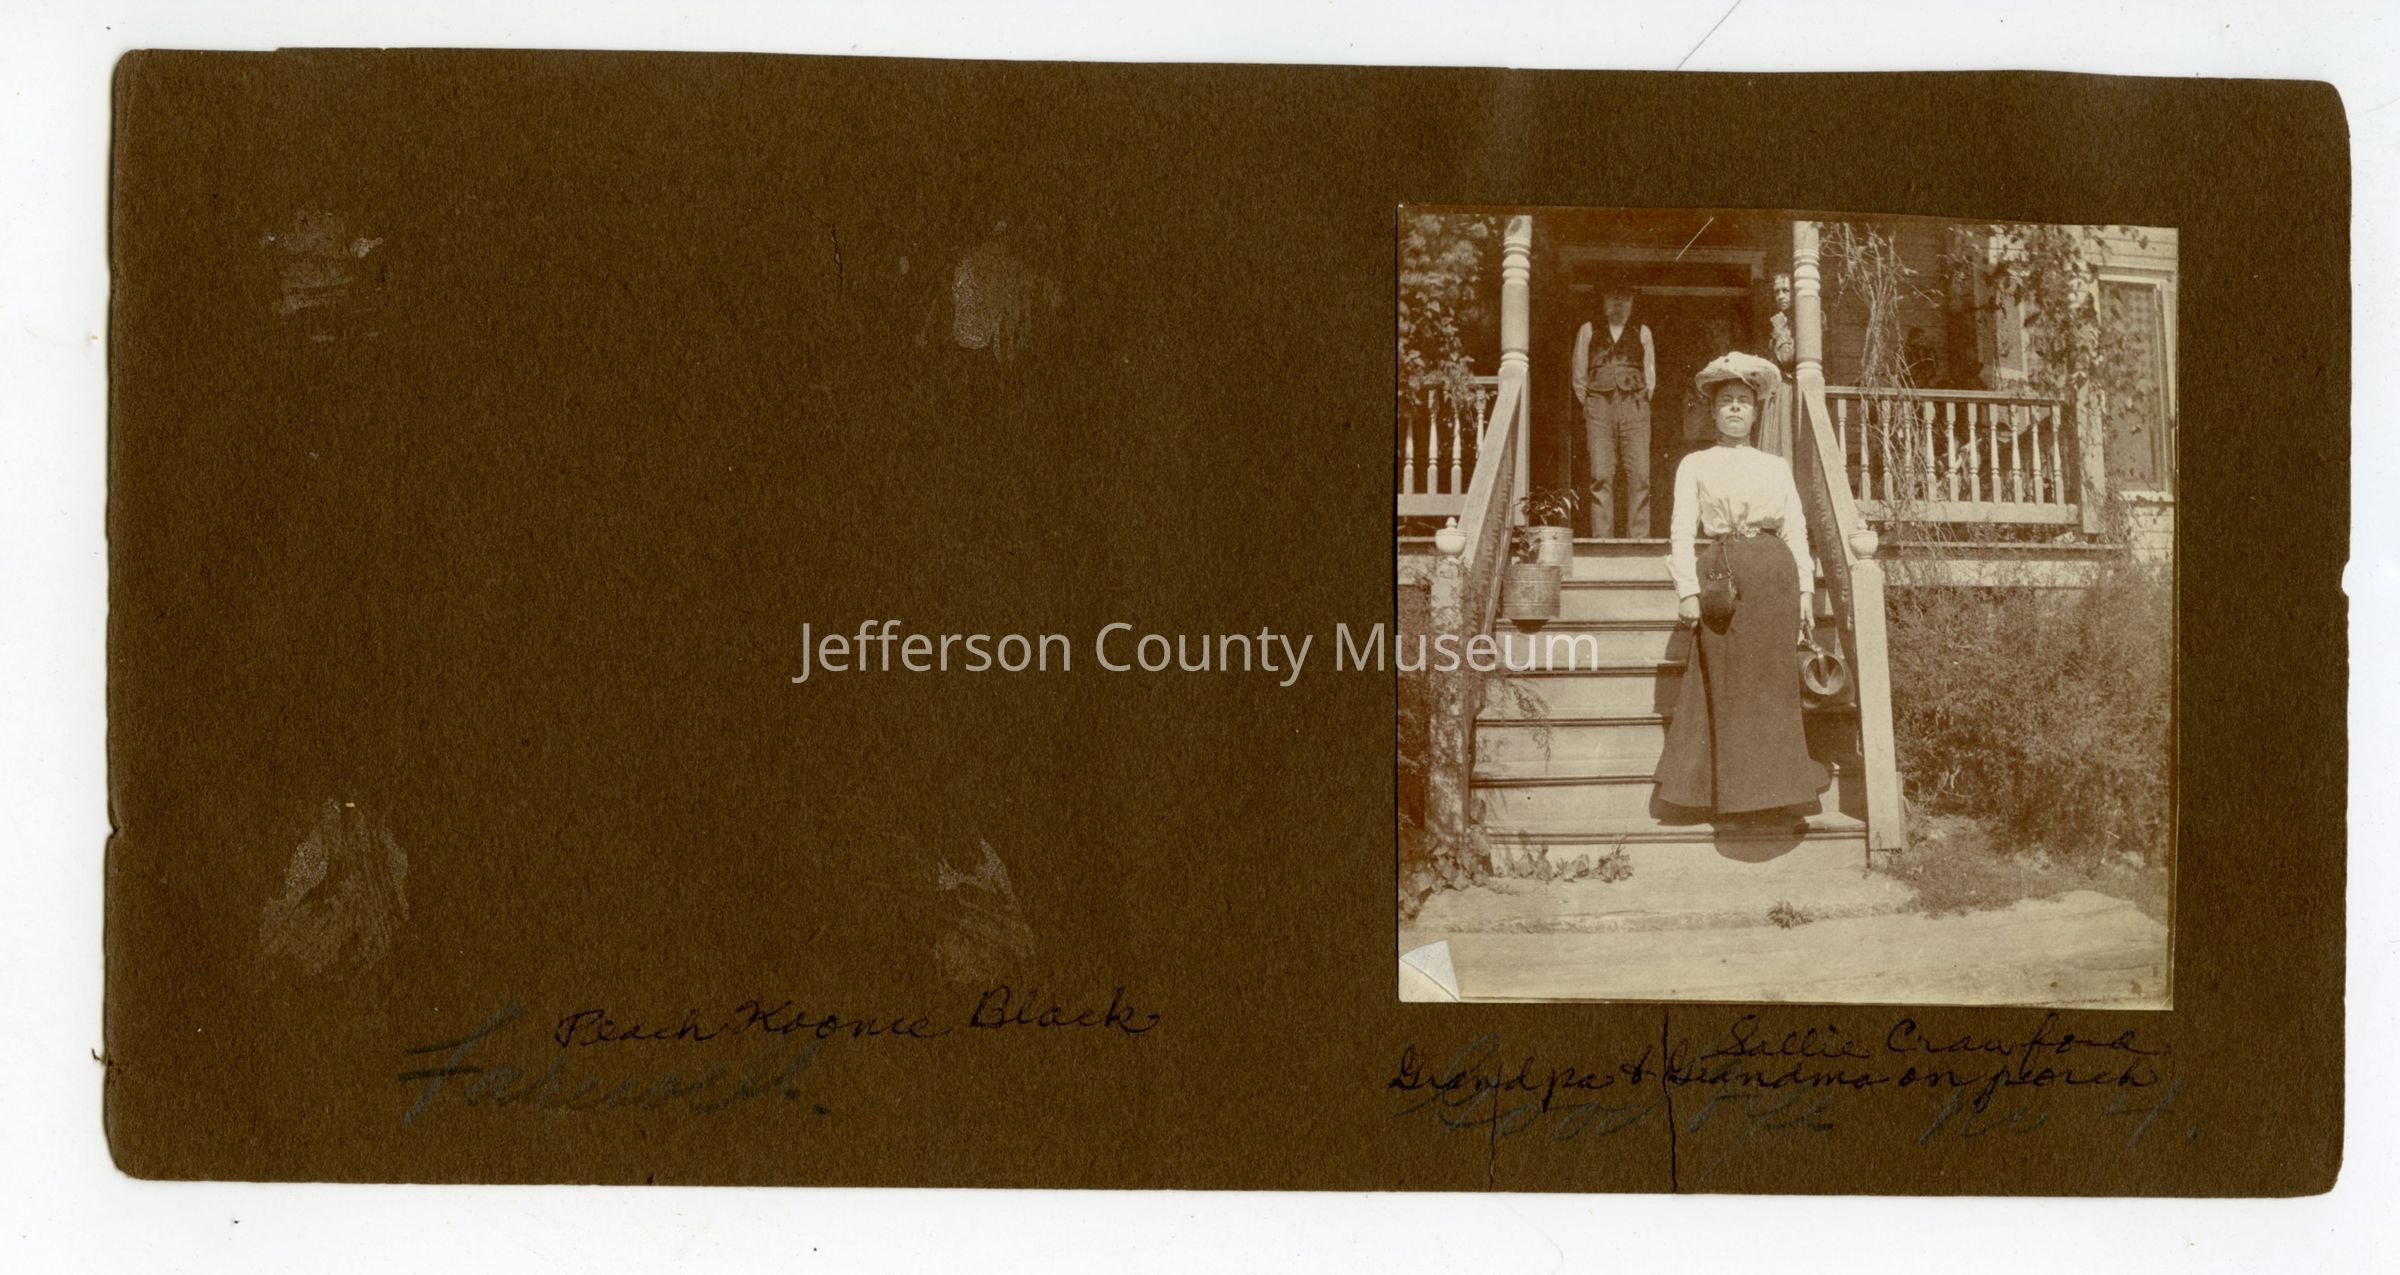 Jefferson County Museum
Peach Koonce Black
Farewell.
Sallie Crawford
Grandpa & Grandma on porch
Good bye no 4.